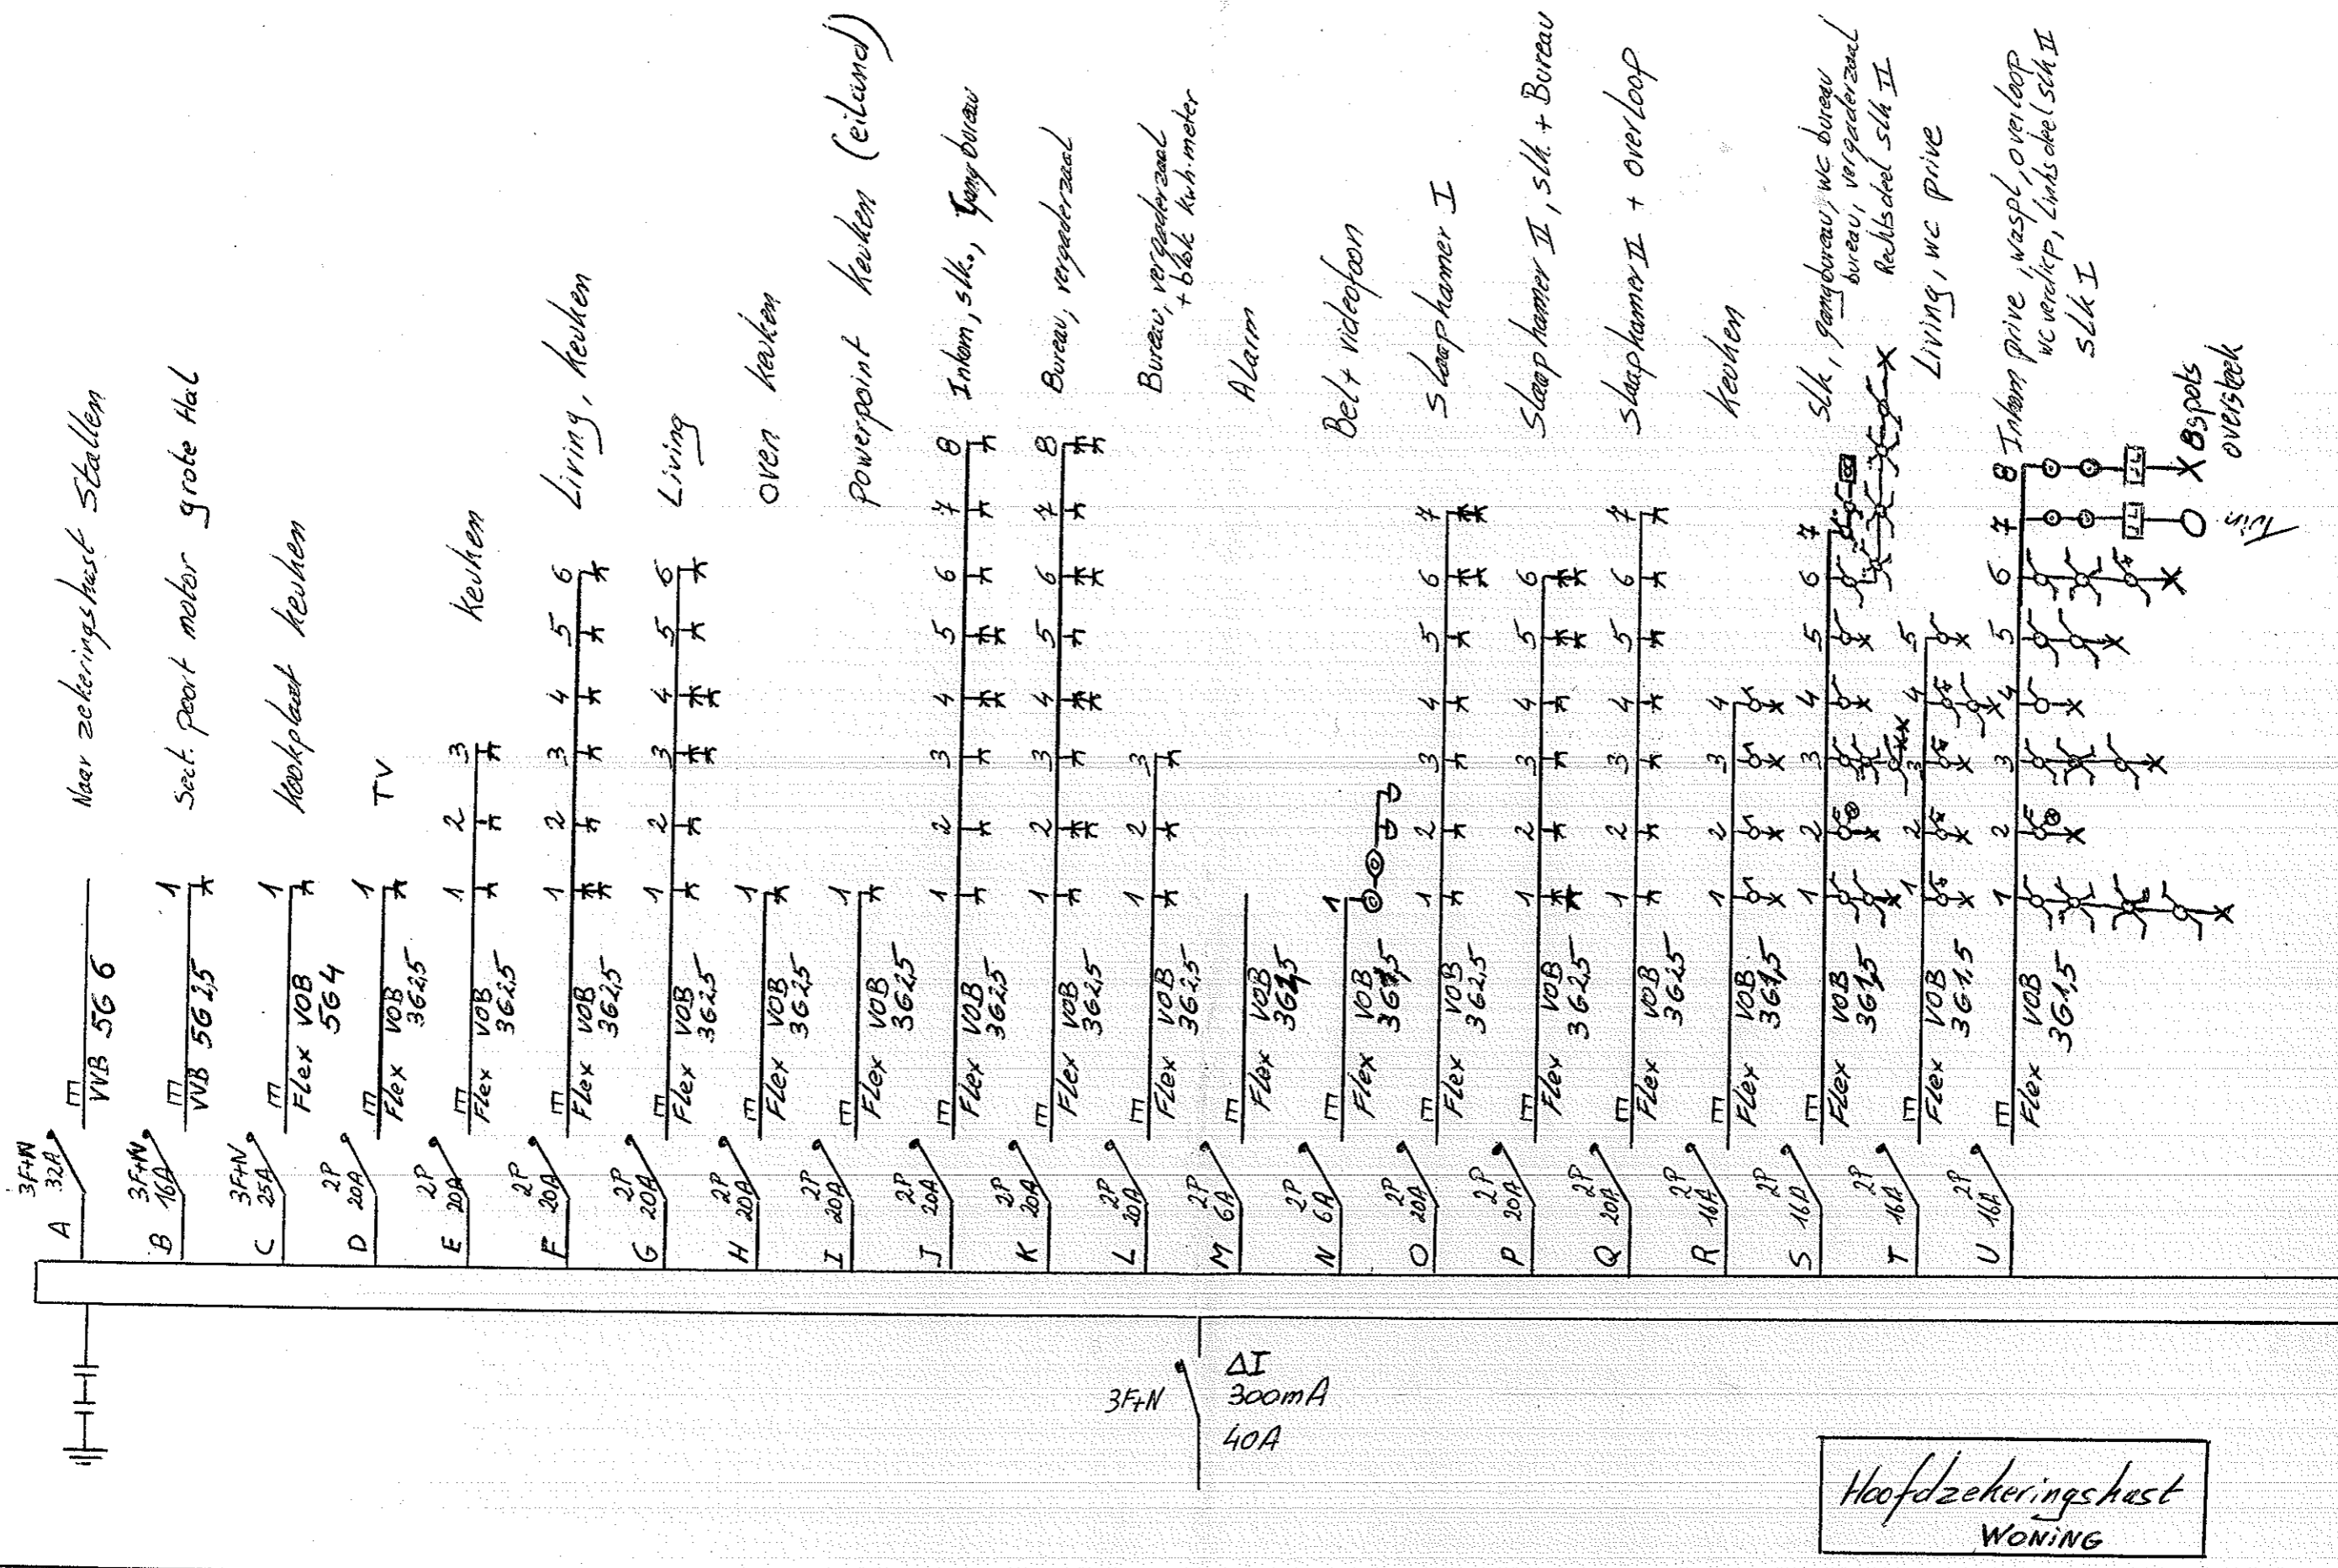 A
3F+N
32A
VVB 5G 6
Naar zekeringskast Stallen
B
3F+N
16A
VVB 5G 2,5
1
Sect. poort motor grote Hal
C
3F+N
25A
Flex VOB
5G4
1
kookplaat keuken
D
2P
20A
Flex VOB
3G2,5
1
TV
E
2P
20A
Flex VOB
3G2,5
1 2 3
keuken
F
2P
20A
Flex VOB
3G2,5
1 2 3 4 5 6
Living, keuken
G
2P
20A
Flex VOB
3G2,5
1 2 3 4 5 6
Living
H
2P
20A
Flex VOB
3G2,5
1
oven keuken
I
2P
20A
Flex VOB
3G2,5
1
powerpoint keuken (eiland)
J
2P
20A
Flex VOB
3G2,5
1 2 3 4 5 6 7 8
Inkom, slk., gang bureau
K
2P
20A
Flex VOB
3G2,5
1 2 3 4 5 6 7 8
Bureau, vergaderzaal
L
2P
20A
Flex VOB
3G2,5
1 2 3
Bureau, vergaderzaal
+ blok kwh.meter
M
2P
6A
Flex VOB
3G1,5
Alarm
N
2P
6A
Flex VOB
3G1,5
1
Bel + videofoon
O
2P
20A
Flex VOB
3G2,5
1 2 3 4 5 6 7
Slaapkamer I
P
2P
20A
Flex VOB
3G2,5
1 2 3 4 5 6
Slaapkamer II, slk. + Bureau
Q
2P
20A
Flex VOB
3G2,5
1 2 3 4 5 6 7
Slaapkamer II + overloop
R
2P
16A
Flex VOB
3G1,5
1 2 3 4
keuken
S
2P
16A
Flex VOB
3G1,5
1 2 3 4 5 6 7
Slk, gangbureau, wc bureau
bureau, vergaderzaal
Rechtsdeel slk II
T
2P
16A
Flex VOB
3G1,5
1 2 3 4 5
Living, wc prive
U
2P
16A
Flex VOB
3G1,5
1 2 3 4 5 6 7 8
Inkom prive, waspl, overloop
wc verdiep, Linksdeel slk II
slk I
Tuin
8 spots
oversteek
3F+N
ΔI
300mA
40A
Hoofdzekeringskast
WONING